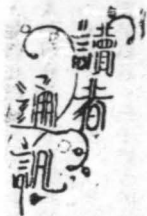 讀者
通訊